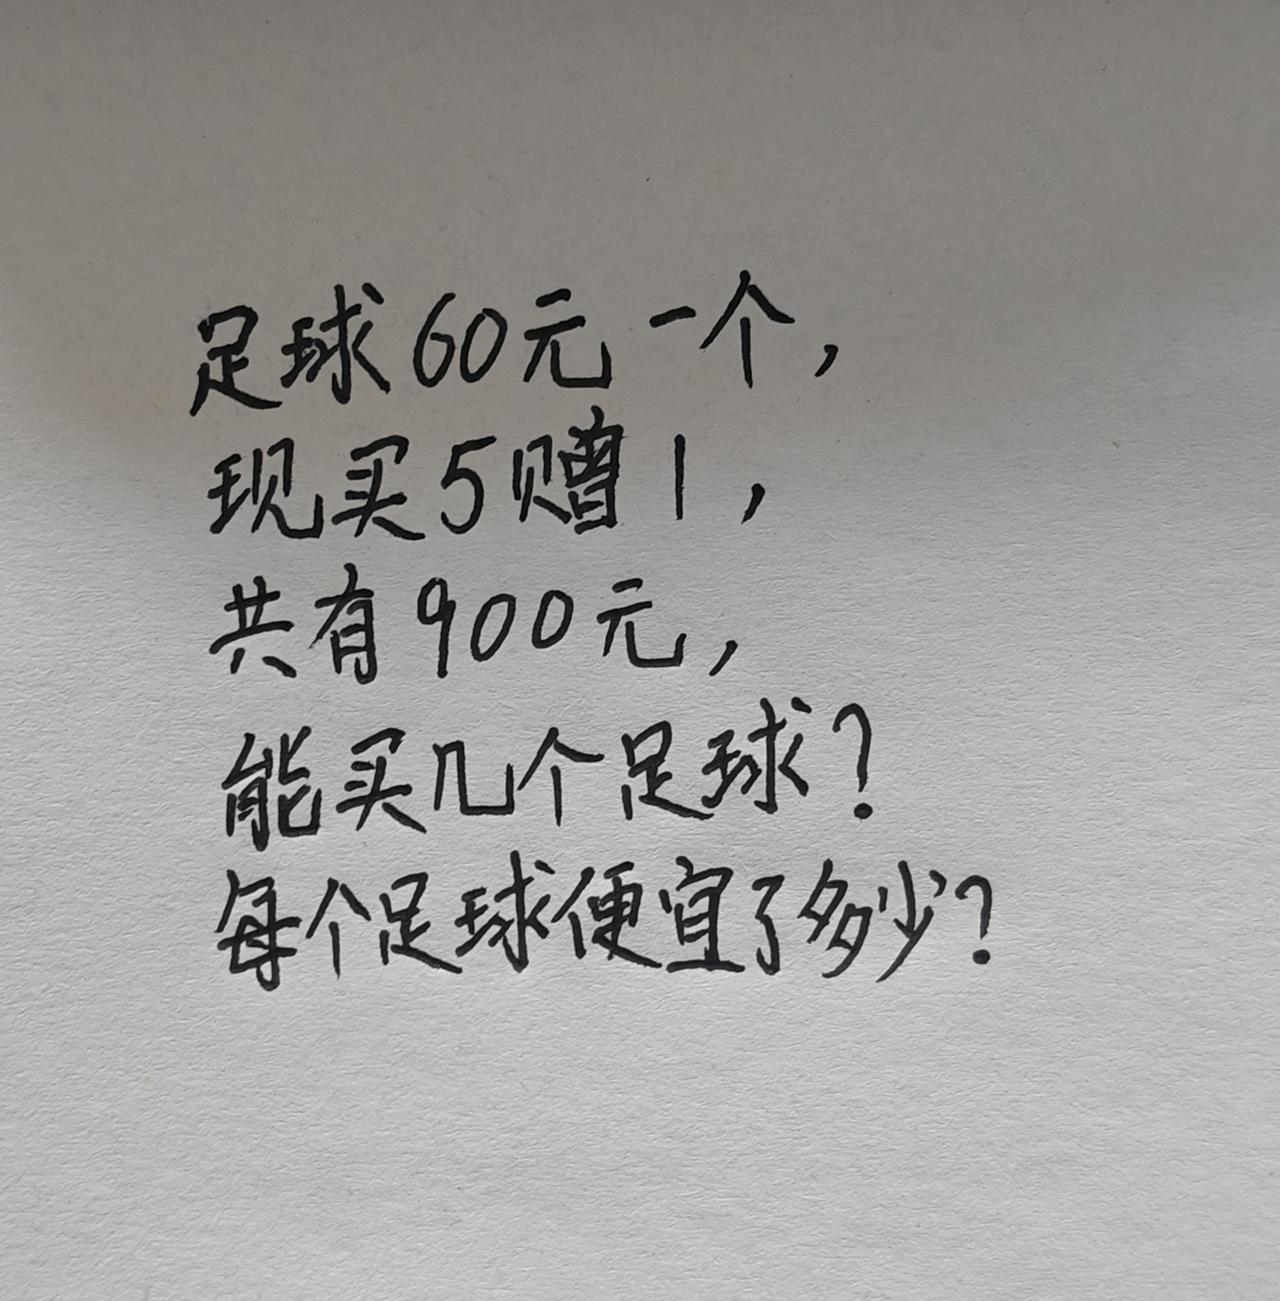 足球60元一个,
现买5赠1,
共有900元,
能买几个足球?
每个足球便宜了多少?